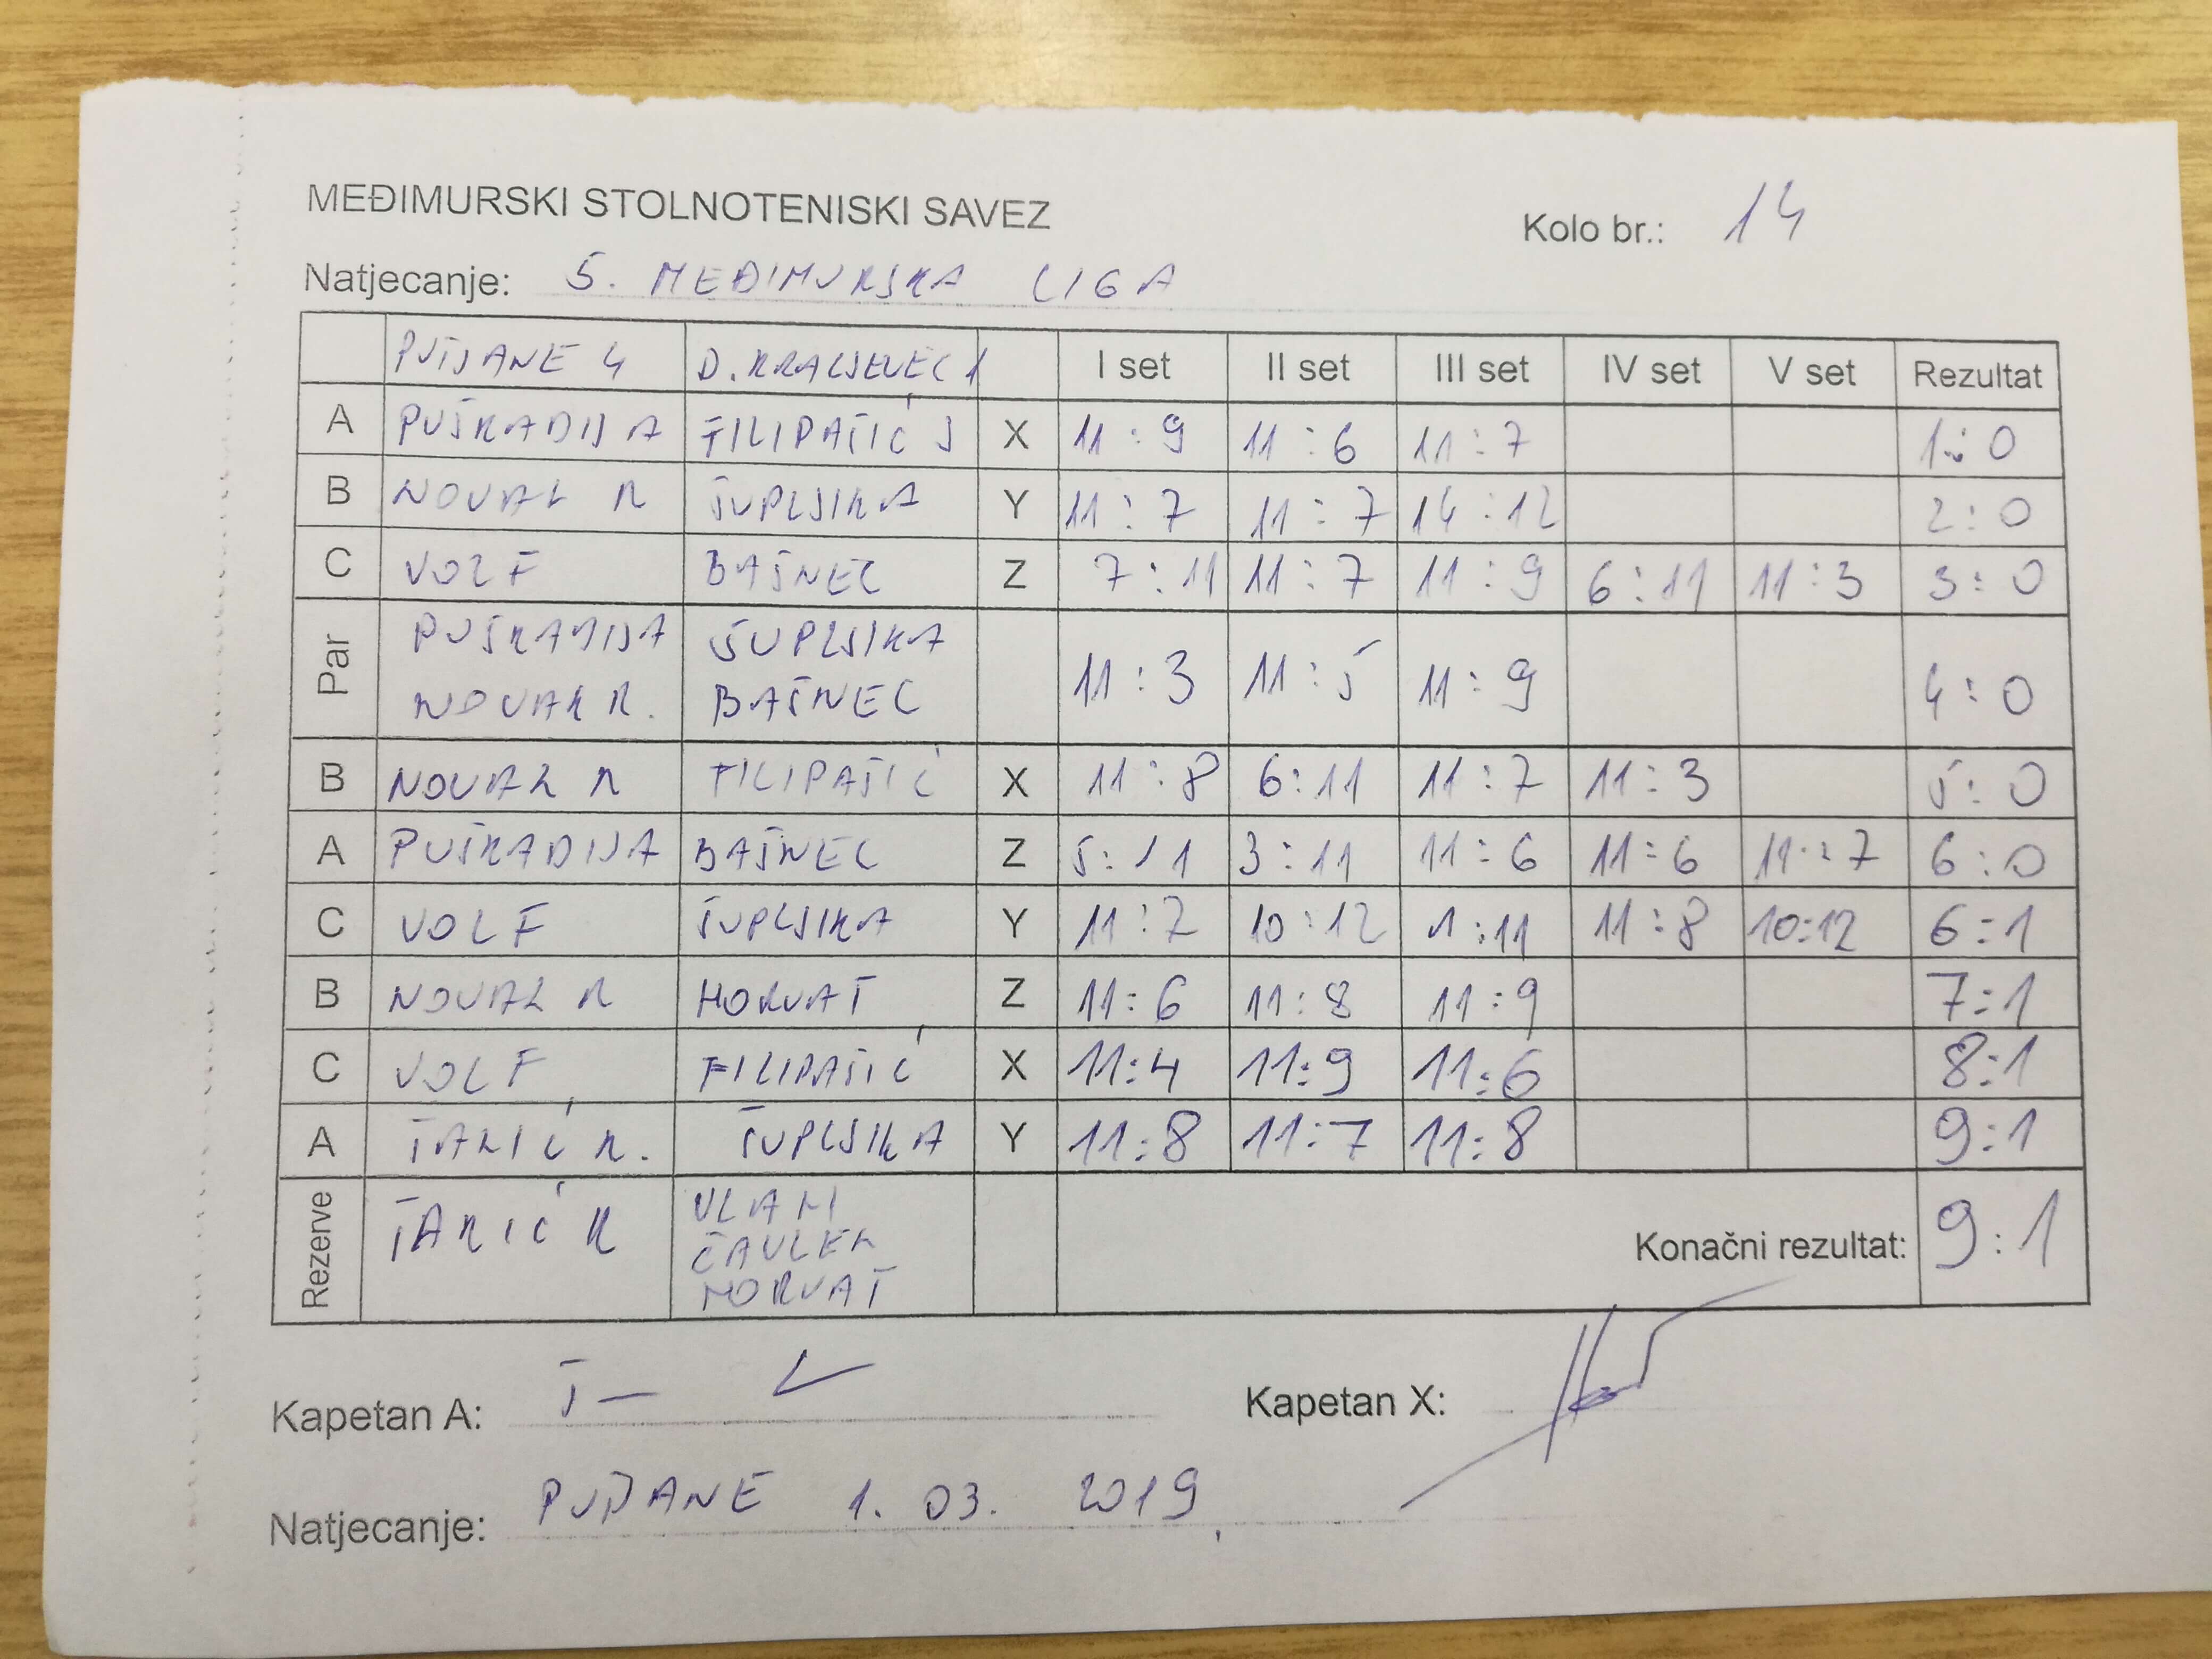 MEĐIMURSKI STOLNOTENISKI SAVEZ
Kolo br.: 14
Natjecanje: 5. MEĐIMURSKA LIGA
4 D. KRALJEVEC 1 I set II set III set IV set V set Rezultat
A PUŠKADIJA FILIPAŠIĆ J X 11:9 11:6 11:7 1:0
B NOVAK R ŠUPLJIKA Y 11:7 11:7 14:12 2:0
C VOLF BAŠNEC Z 7:11 11:7 11:9 6:11 11:3 3:0
Par PUŠKADIJA ŠUPLJIKA 11:3 11:5 11:9 4:0
NOVAK R. BAŠNEC
B NOVAK R FILIPAŠIĆ X 11:8 6:11 11:7 11:3 5:0
A PUŠKADIJA BAŠNEC Z 5:11 3:11 11:6 11:6 11:7 6:0
C VOLF ŠUPLJIKA Y 11:7 10:12 1:11 11:8 10:12 6:1
B NOVAK R HORVAT Z 11:6 11:8 11:9 7:1
C VOLF FILIPAŠIĆ X 11:4 11:9 11:6 8:1
A R. ŠUPLJIKA Y 11:8 11:7 11:8 9:1
Rezerve R VLAH
ČAVLEK
HORVAT
Konačni rezultat: 9:1
Kapetan A:
Kapetan X:
Natjecanje: 1. 03. 2019.